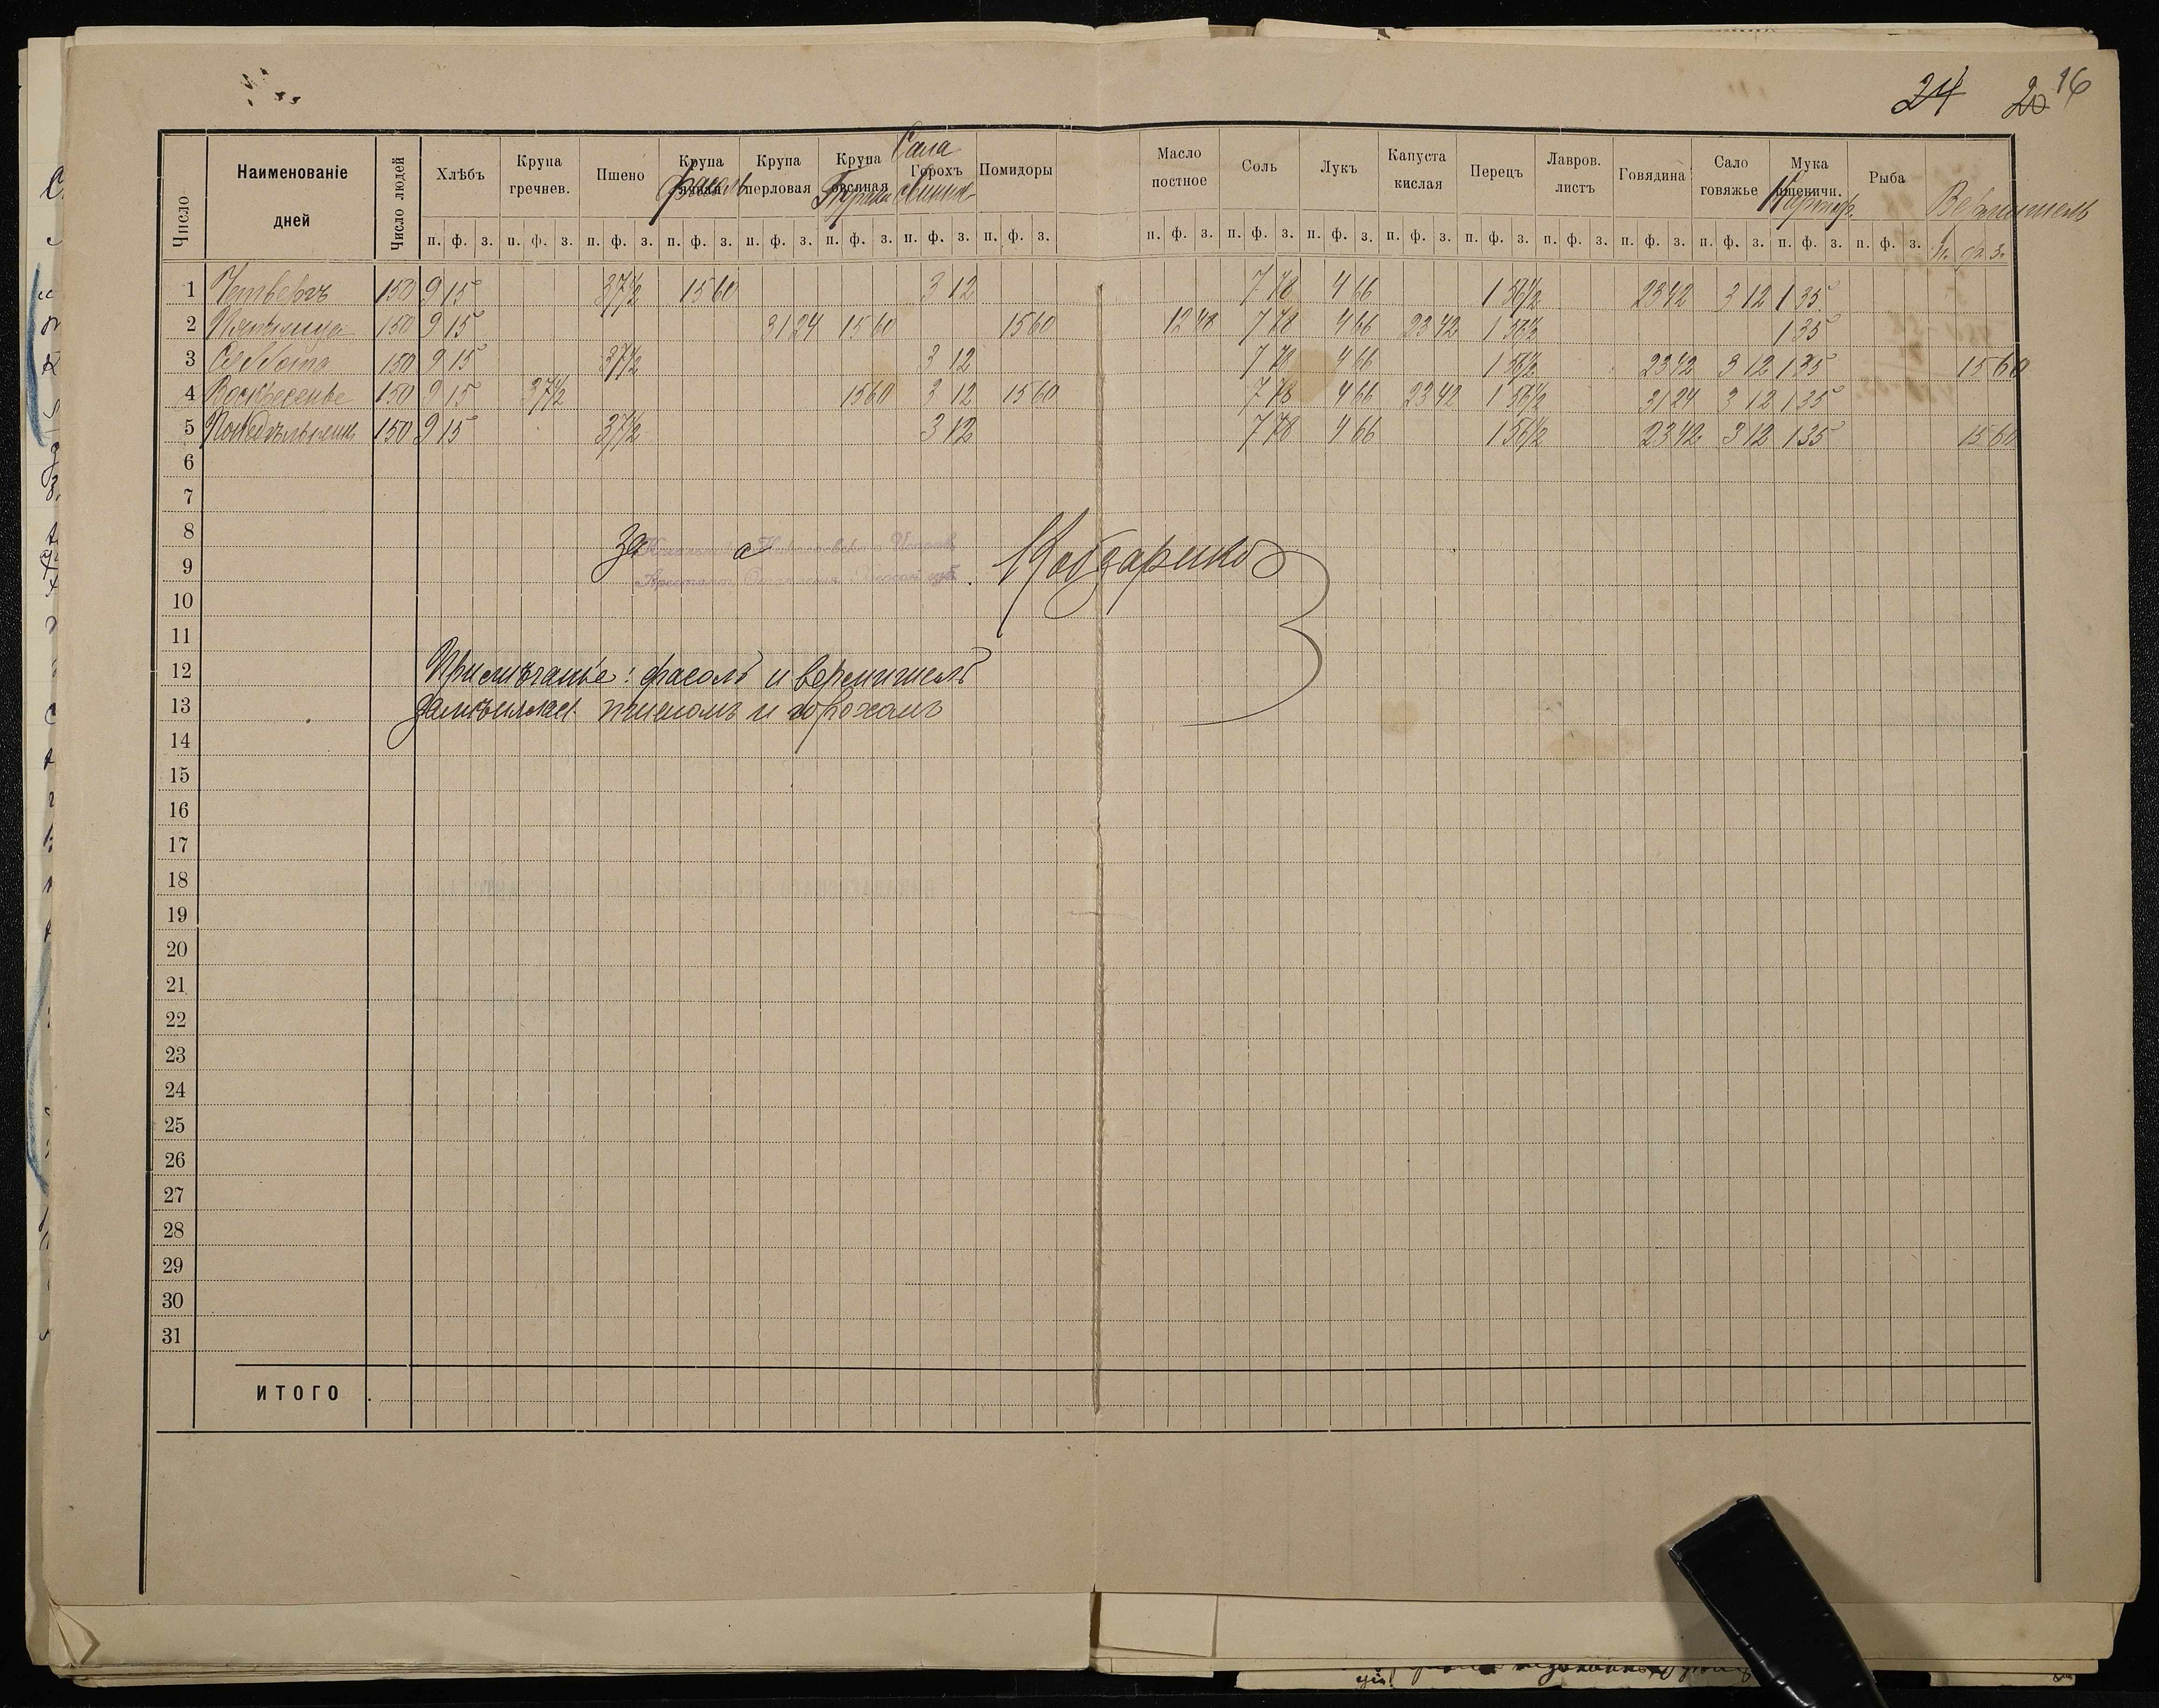 24 20 16
Число Наименованіе дней Число людей Хлѣбъ Крупа гречнев. Пшено Крупа Фасоль Крупа перловая Крупа овсяная Бураки Горохъ Сала свиного Помидоры Масло постное Соль Лукъ Капуста кислая Перецъ Лавров. листъ Говядина Сало говяжье Мука пшеничн. Картоф. Рыба Вермишель
п. ф. з. п. ф. з. п. ф. з. п. ф. з. п. ф. з. п. ф. з. п. ф. з. п. ф. з. п. ф. з. п. ф. з. п. ф. з. п. ф. з. п. ф. з. п. ф. з. п. ф. з. п. ф. з. п. ф. з. п. ф. з. п. ф. з.
1 Четвергъ 150 9 15 37½ 15 60 3 12 7 78 4 66 1 56½ 23 42 3 12 1 35
2 Пятница 150 9 15 31 24 15 60 15 60 12 48 7 78 4 66 23 42 1 56½ 1 35
3 Суббота 150 9 15 37½ 3 12 7 78 4 66 1 56½ 23 42 3 12 1 35 15 60
4 Воскресенье 150 9 15 37½ 15 60 3 12 15 60 7 78 4 66 23 42 1 56½ 31 24 3 12 1 35
5 Понедѣльникъ 150 9 15 37½ 3 12 7 78 4 66 1 56½ 23 42 3 12 1 35 15 60
6
7
8
За Николаевскаго Исправ.
9
Арестант. Отдѣленія Кобзаренко
10
11
12
Примѣчаніе: фасоль и вермишель
13
замѣнялась пшеномъ и горохомъ
14
15
16
17
18
19
20
21
22
23
24
25
26
27
28
29
30
31
ИТОГО